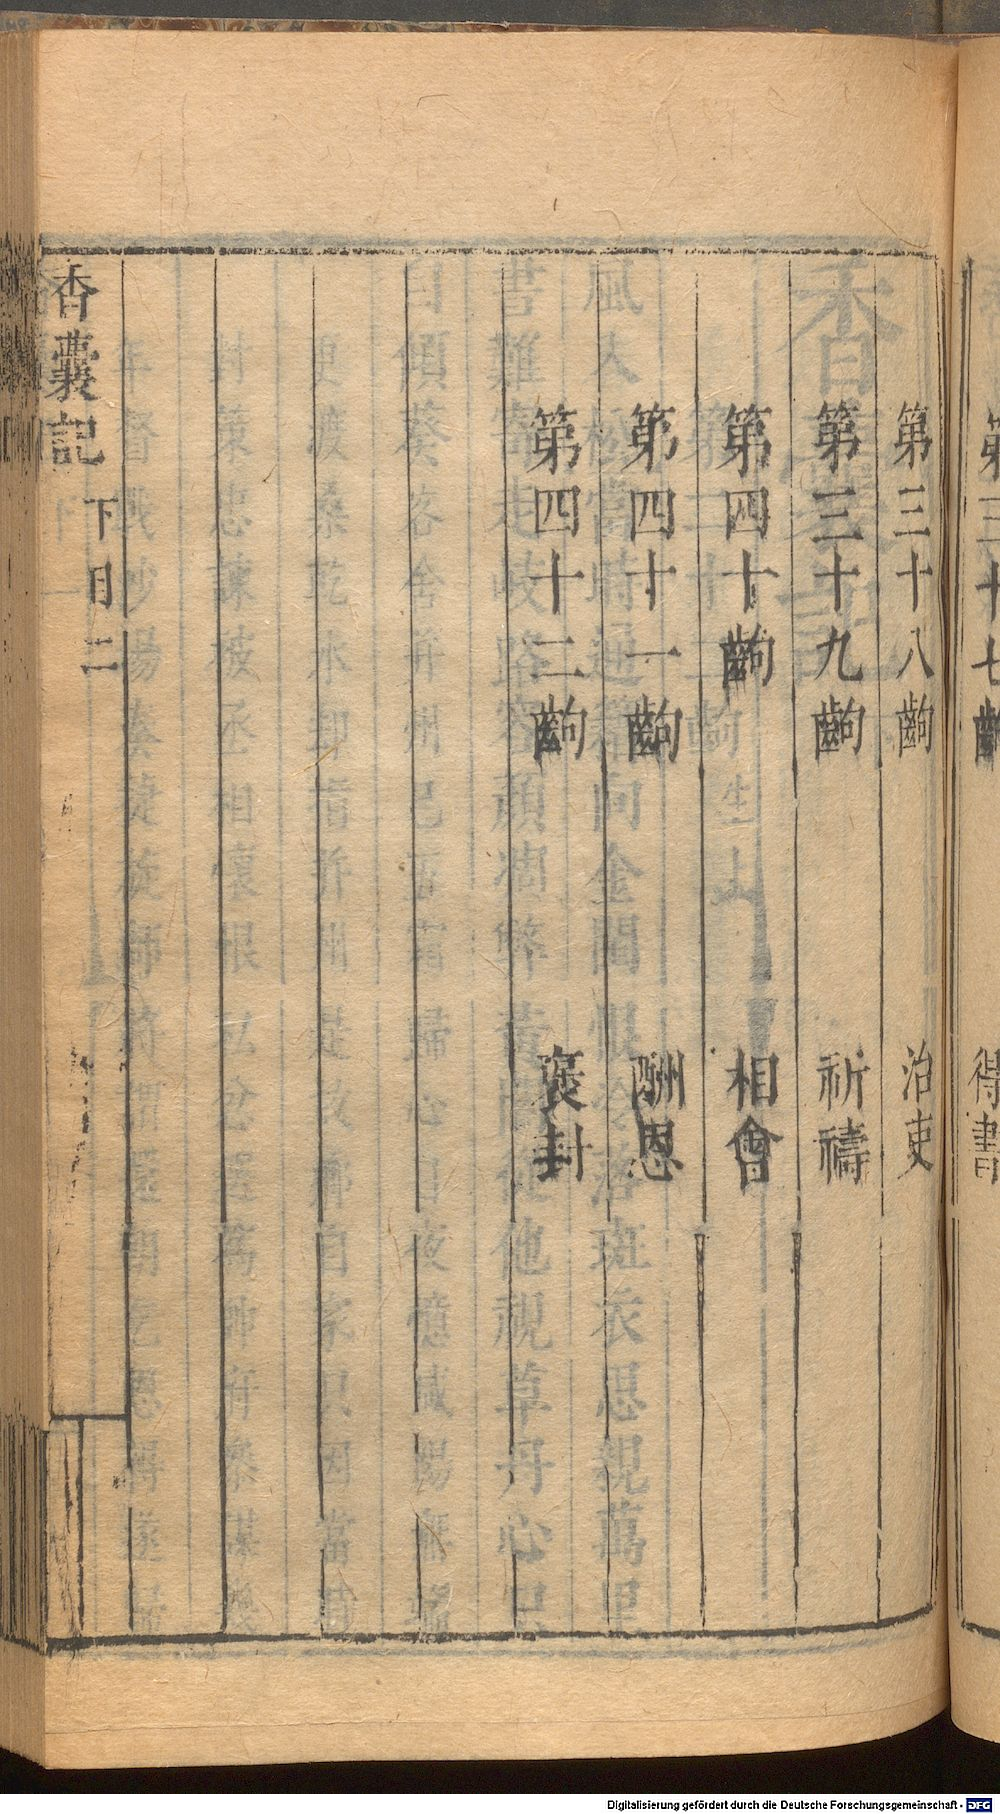 第三十七齣 得書
第三十八齣 治吏
第三十九齣 祈禱
第四十齣 相會
第四十一齣 酬恩
第四十二齣 褒封
香囊記 下目 二
Digitalisierung gefördert durch die Deutsche Forschungsgemeinschaft - DFG